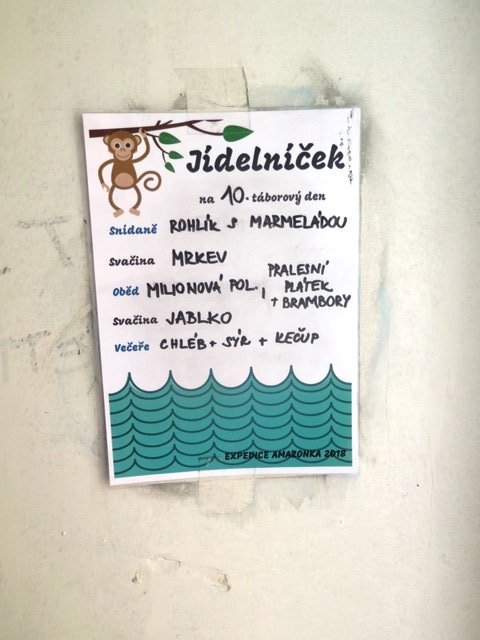 Jídelníček
na 10. táborový den
Snídaně ROHLÍK S MARMELÁDOU
Svačina MRKEV
Oběd MILIONOVÁ POL. , PRALESNÍ
PLÁTEK
+ BRAMBORY
Svačina JABLKO
Večeře CHLÉB + SÝR + KEČUP
EXPEDICE AMAZONKA 2018